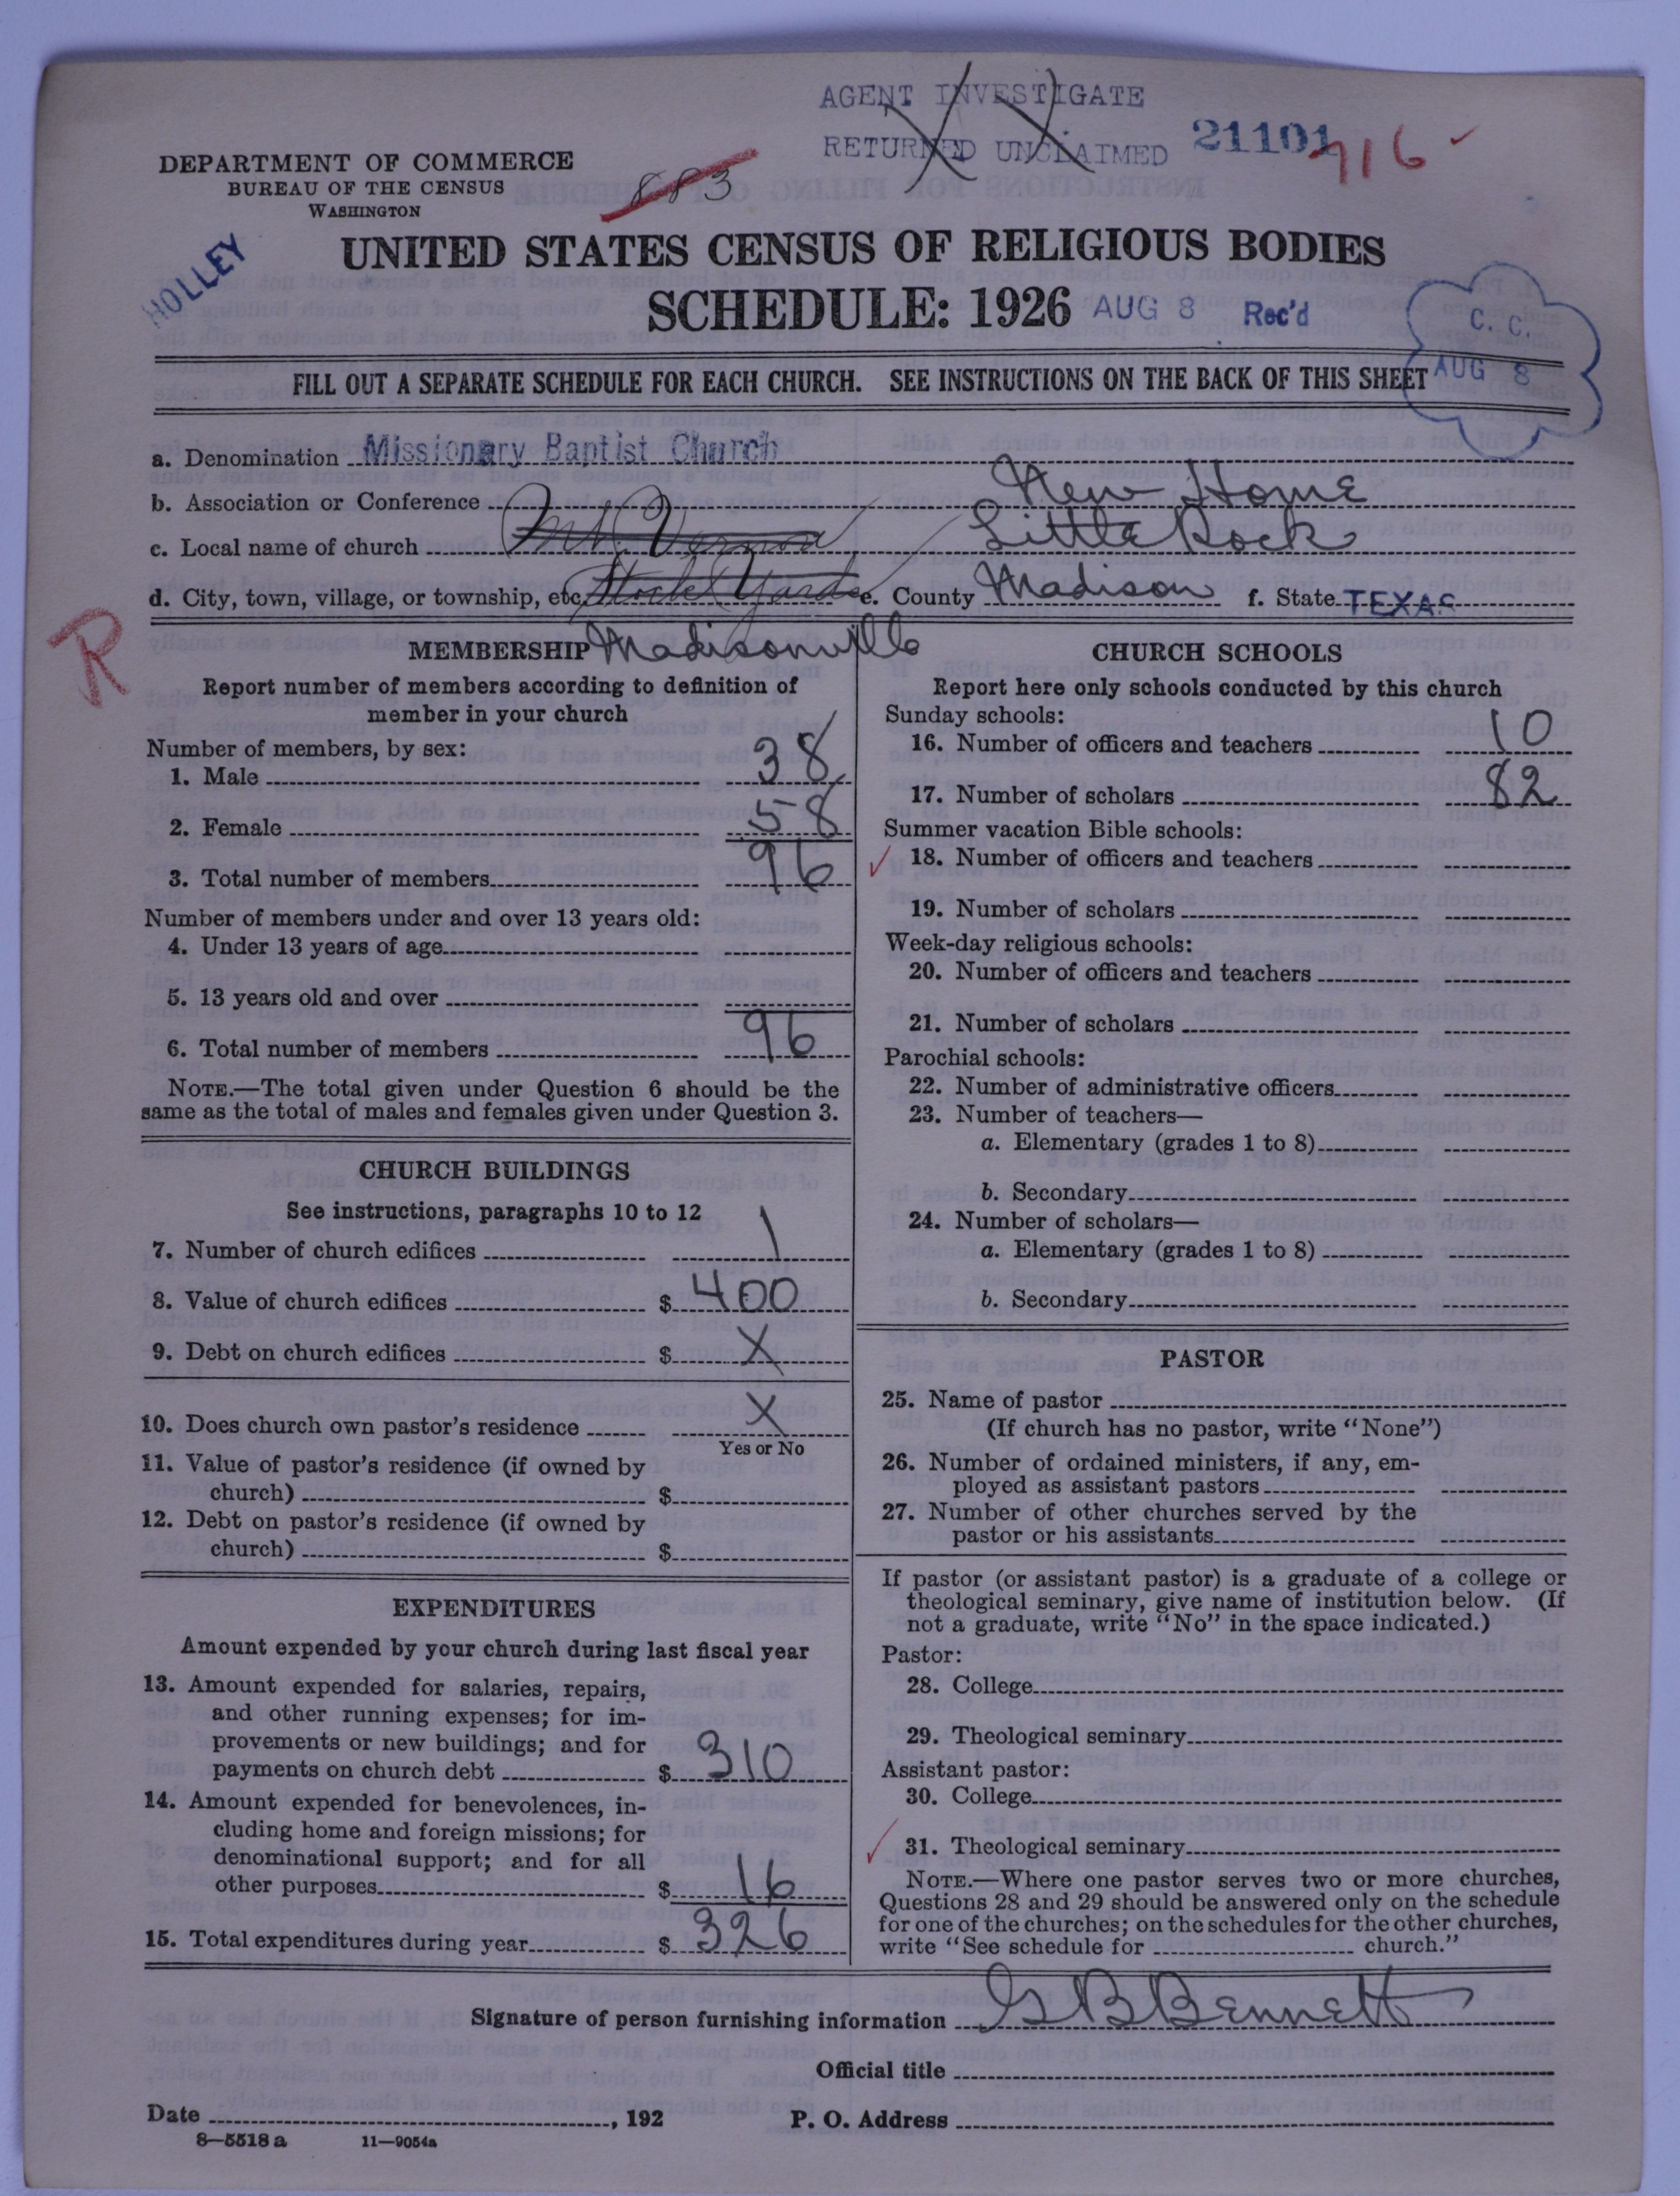 AGENT INVESTIGATE
RETURNED UNCLAIMED 21101 716
DEPARTMENT OF COMMERCE
BUREAU OF THE CENSUS
WASHINGTON
883
HOLLEY
UNITED STATES CENSUS OF RELIGIOUS BODIES
SCHEDULE: 1926 AUG 8 Rec'd
C. C.
AUG 8
FILL OUT A SEPARATE SCHEDULE FOR EACH CHURCH. SEE INSTRUCTIONS ON THE BACK OF THIS SHEET
a. Denomination Missionary Baptist Church
b. Association or Conference New Home
c. Local name of church Mt. Vernon Little Rock
d. City, town, village, or township, etc. e. County Madison f. State TEXAS
R
Madisonville
MEMBERSHIP
Report number of members according to definition of
member in your church
Number of members, by sex:
1. Male 38
2. Female 58
3. Total number of members 96
Number of members under and over 13 years old:
4. Under 13 years of age
5. 13 years old and over
6. Total number of members 96
NOTE.—The total given under Question 6 should be the
same as the total of males and females given under Question 3.
CHURCH BUILDINGS
See instructions, paragraphs 10 to 12
7. Number of church edifices 1
8. Value of church edifices $ 400
9. Debt on church edifices $ X
10. Does church own pastor's residence X
Yes or No
11. Value of pastor's residence (if owned by
church) $
12. Debt on pastor's residence (if owned by
church) $
EXPENDITURES
Amount expended by your church during last fiscal year
13. Amount expended for salaries, repairs,
and other running expenses; for im-
provements or new buildings; and for
payments on church debt $ 310
14. Amount expended for benevolences, in-
cluding home and foreign missions; for
denominational support; and for all
other purposes $ 16
15. Total expenditures during year $ 326
CHURCH SCHOOLS
Report here only schools conducted by this church
Sunday schools:
16. Number of officers and teachers 10
17. Number of scholars 82
Summer vacation Bible schools:
18. Number of officers and teachers
19. Number of scholars
Week-day religious schools:
20. Number of officers and teachers
21. Number of scholars
Parochial schools:
22. Number of administrative officers
23. Number of teachers—
a. Elementary (grades 1 to 8)
b. Secondary
24. Number of scholars—
a. Elementary (grades 1 to 8)
b. Secondary
PASTOR
25. Name of pastor
(If church has no pastor, write "None")
26. Number of ordained ministers, if any, em-
ployed as assistant pastors
27. Number of other churches served by the
pastor or his assistants
If pastor (or assistant pastor) is a graduate of a college or
theological seminary, give name of institution below. (If
not a graduate, write "No" in the space indicated.)
Pastor:
28. College
29. Theological seminary
Assistant pastor:
30. College
31. Theological seminary
NOTE.—Where one pastor serves two or more churches,
Questions 28 and 29 should be answered only on the schedule
for one of the churches; on the schedules for the other churches,
write "See schedule for church."
Signature of person furnishing information G B Bennett
Official title
Date , 192 P. O. Address
8—5518 a 11—9054a